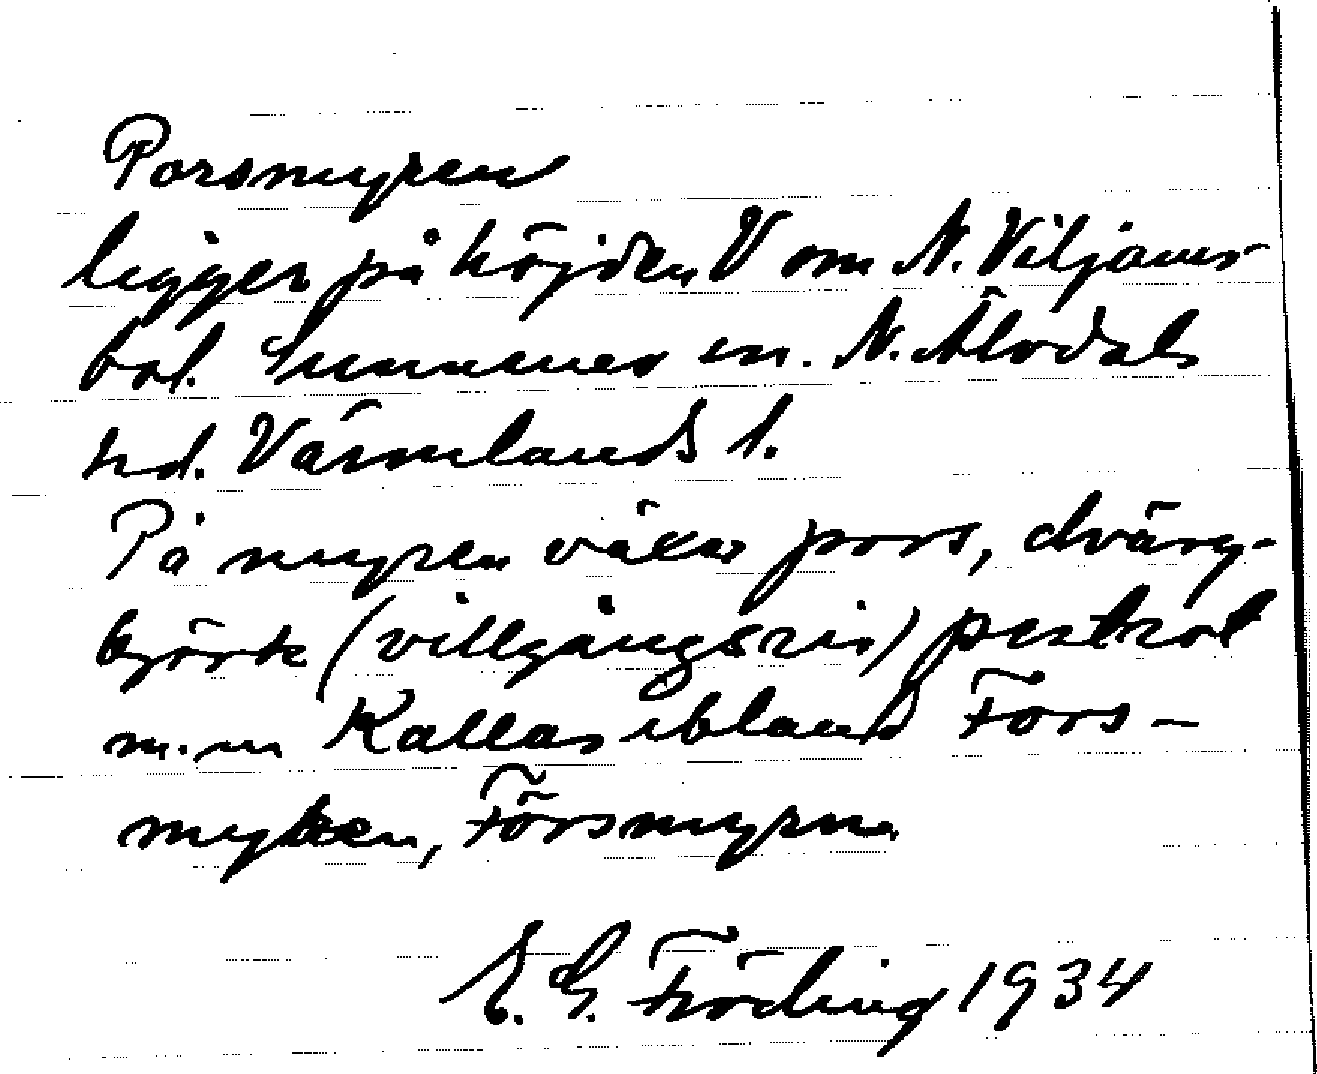 Porsmyren
ligger på höjden V om N. Viljaner
bol. Sunnemo sn. N. Älvdals
hd. Värmlands l.
På myren växer pors, dvärg-
björk (villgångsris) pestrot
m.m Kallas ibland Fors-
myren, Försmyrna
E. G. Fröding 1934